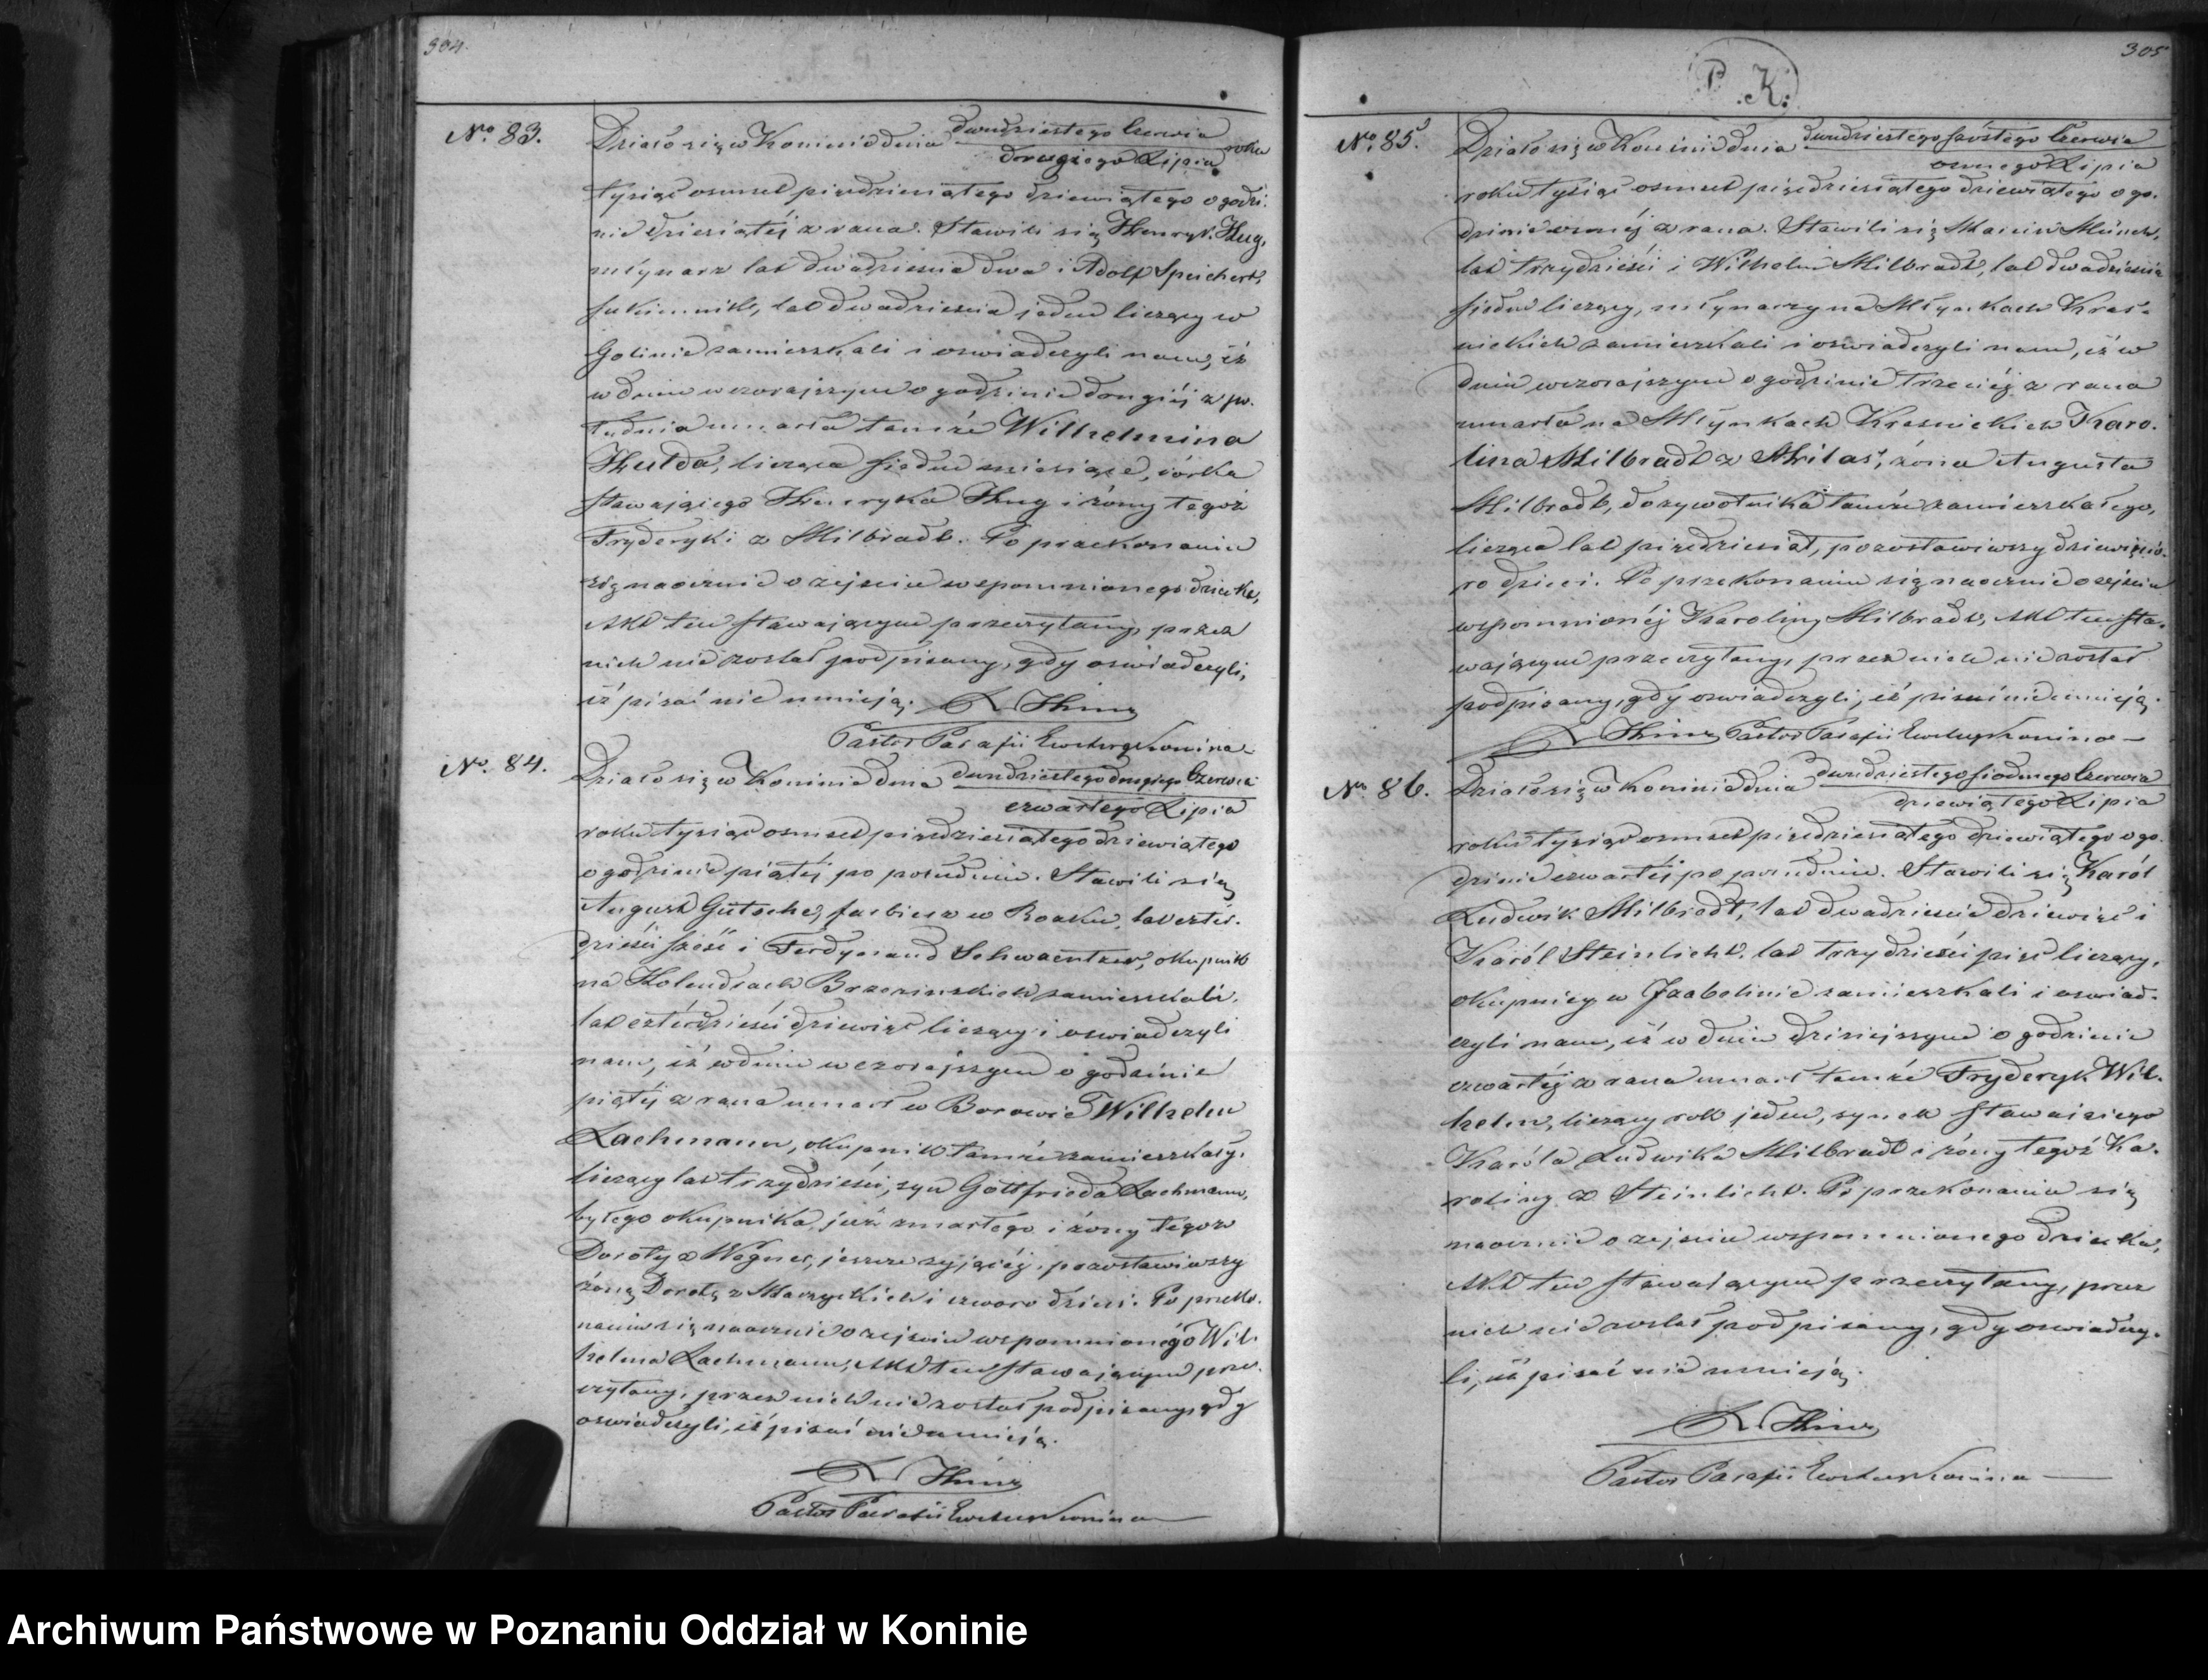 304.
No. 83.
Działo się w Koninie dnia dwudziestego Czerwca
drugiego Lipca roku
tysiąc osmset piędziesiątego dziewiątego o godzi-
nie dziesiątéj z rana. Stawili się Henryk Hug,
młynarz lat dwadzieścia dwa i Adolf Speichert,
sukiennik, lat dwadzieścia jeden liczący w
Golinie zamieszkali i oswiadczyli nam, iż
w dniu wczorajszym o godzinie drugiéj z po-
łudnia umarła tamże Wilhelmina
Hulda, licząca siedm miesiące, córka
stawającego Henryka Hug i żony tegoż
Fryderyki z Milbradt. Po przekonaniu
się naocznie o zejściu wspomnionego dziecka,
Akt ten stawającym przeczytany, przez
nich nie został podpisany, gdy oswiadczyli,
iż pisać nie umieją.
Pastor Parafii Ewang Konina
No. 84.
Działo się w Koninie dnia dwudziestego drugiego Czerwca
czwartego Lipca
roku tysiąc osmset piędziesiątego dziewiątego
o godzinie piątéj po południu. Stawili się
August Gutsche, farbierz w lat czter-
dzieści sześć i Ferdynand okupnik
na Holendrach Brzezinskich zamieszkali,
lat czterdzieści dziewięć liczący i oswiadczyli
nam, iż w dniu wczorajszym o godzinie
piątéj z rana umarł w Borowie Wilhelm
Lachmann, okupnik tamże zamieszkały,
liczący lat trzydzieści, syn Gottfrieda Lachmann,
byłego okupnika, już zmarłego i żony tegoż
Doroty z Wegner, jeszcze żyjącéj, pozostawiwszy
żonę Dorotę z i czworo dzieci. Po przeko-
naniu się naocznie o zejściu wspomnionego Wil-
helma Lachmann, Akt ten stawającym prze-
czytany, przez nich nie został podpisany, gdy
oswiadczyli, iż pisać nie umieją.
Pastor Parafii Ewang Konina
P. K.
305
No. 85.
Działo się w Koninie dnia dwudziestego szóstego Czerwca
osmego Lipca
roku tysiąc osmset piędziesiątego dziewiątego o go-
dzinie osméj z rana. Stawili się Marcin Münch,
lat trzydzieści i Wilhelm Milbradt, lat dwadzieścia
siedm liczący, młynarzy na Młynkach Kraś-
nickich zamieszkali i oswiadczyli nam, iż w
dniu wczorajszym o godzinie trzeciéj z rana
umarła na Młynkach Kraśnickich Karo-
lina Milbradt z Milas, żona Augusta
Milbradt, dożywotnika tamże zamieszkałego,
licząca lat pięдziesiąt, pozostawiwszy dziewięcio-
ro dzieci. Po przekonaniu się naocznie o zejściu
wspomnionéj Karoliny Milbradt, Akt ten sta-
wającym przeczytany, przez nich nie został
podpisany, gdy oswiadczyli, iż pisać nie umieją.
Pastor Parafii Ewang Konina
No. 86.
Działo się w Koninie dnia dwudziestego siodmego Czerwca
dziewiątego Lipca
roku tysiąc osmset piędziesiątego dziewiątego o go-
dzinie czwartéj po południu. Stawili się Karól
Ludwik Milbradt, lat dwadzieścia dziewięć i
Karól Steinlicht, lat trzydzieści pięć liczący,
okupnicy w Izabelinie zamieszkali i oswiad-
czyli nam, iż w dniu dzisiejszym o godzinie
czwartéj z rana umarł tamże Fryderyk Wil-
helm, liczący rok jeden, synek stawającego
Karóla Ludwika Milbradt i żony tegoż Ka-
roliny z Steinlicht. Po przekonaniu się
naocznie o zejściu wspomnionego dziecka,
Akt ten stawającym przeczytany, przez
nich nie został podpisany, gdy oswiadczy-
li, iż pisać nie umieją.
Pastor Parafii Ewang Konina
Archiwum Państwowe w Poznaniu Oddział w Koninie